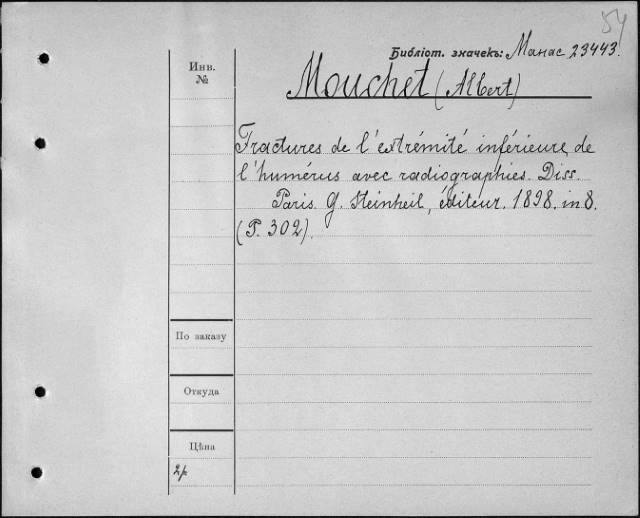 54
Библіот. значекъ: Манас 23443.
Инв.
№
Mouchet (Albert)
Fractures de l'extrémité inférieure de
l'humérus avec radiographies. Diss.
Paris. G. Steinheil, éditeur. 1898. in 8.
(P. 302).
По заказу
Откуда
Цѣна
2р